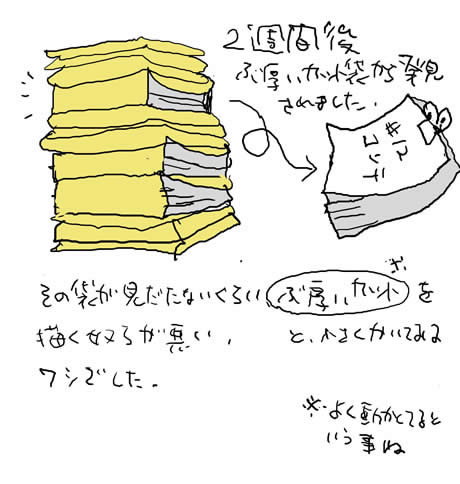 2週間後
ぶ厚いカット袋から発見
されました.
きっ
てつ
その袋が見だたないくらいぶ厚いカットを
描く奴らが悪い.
と、小さくかいてみる
ワシでした。
※よく動かしてると
いう事ね